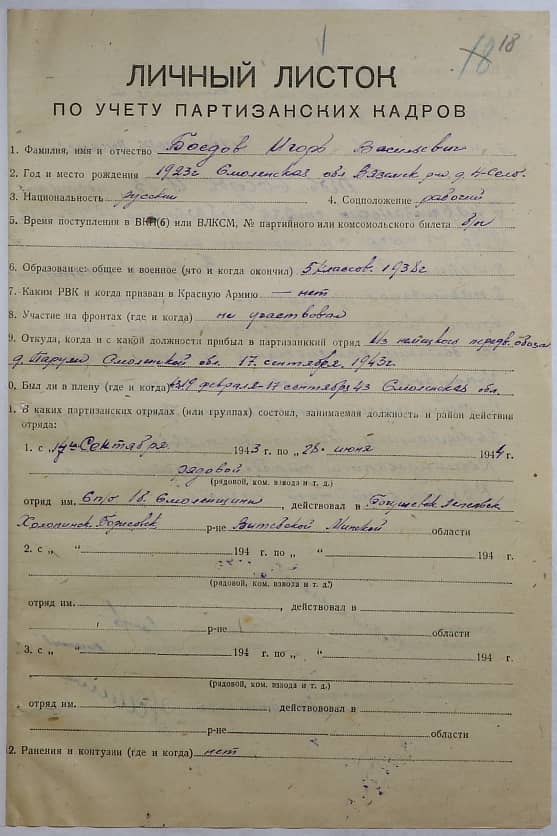 18 18
ЛИЧНЫЙ ЛИСТОК
ПО УЧЕТУ ПАРТИЗАНСКИХ КАДРОВ
1. Фамилия, имя и отчество Боедов Игорь Васильевич
2. Год и место рождения 1923г Смоленская обл Вяземск р-н д. Н-Село.
3. Национальность русский 4. Соцположение рабочий
5. Время поступления в ВКП(б) или ВЛКСМ, № партийного или комсомольского билета б/п
6. Образование: общее и военное (что и когда окончил) 5 классов. 1938г
7. Каким РВК и когда призван в Красную Армию — нет
8. Участие на фронтах (где и когда) не участвовал
9. Откуда, когда и с какой должности прибыл в партизанский отряд Из немецкого обоза
д. Смоленской обл. 17. сентября. 1943г.
0. Был ли в плену (где и когда) 19 февраля-17 сентября 43 Смоленская обл.
1. В каких партизанских отрядах (или группах) состоял, занимаемая должность и район действия
отряда:
1. с „17 “ Сентября 1943 г. по „ 28 “ июня 1944 г.
рядовой
(рядовой, ком. взвода и т. д.)
отряд им. 6 п/о 16. Смоленщины, действовал в
Холопинск. Борисовск р-не Витебской Минской области
2. с „ “ 194 г. по „ “ 194 г.
(рядовой, ком. взвода и т. д.)
отряд им. , действовал в
р-не области
3. с „ “ 194 г. по „ “ 194 г.
(рядовой, ком. взвода и т. д.)
отряд им. , действовал в
р-не области
2. Ранения и контузии (где и когда) нет